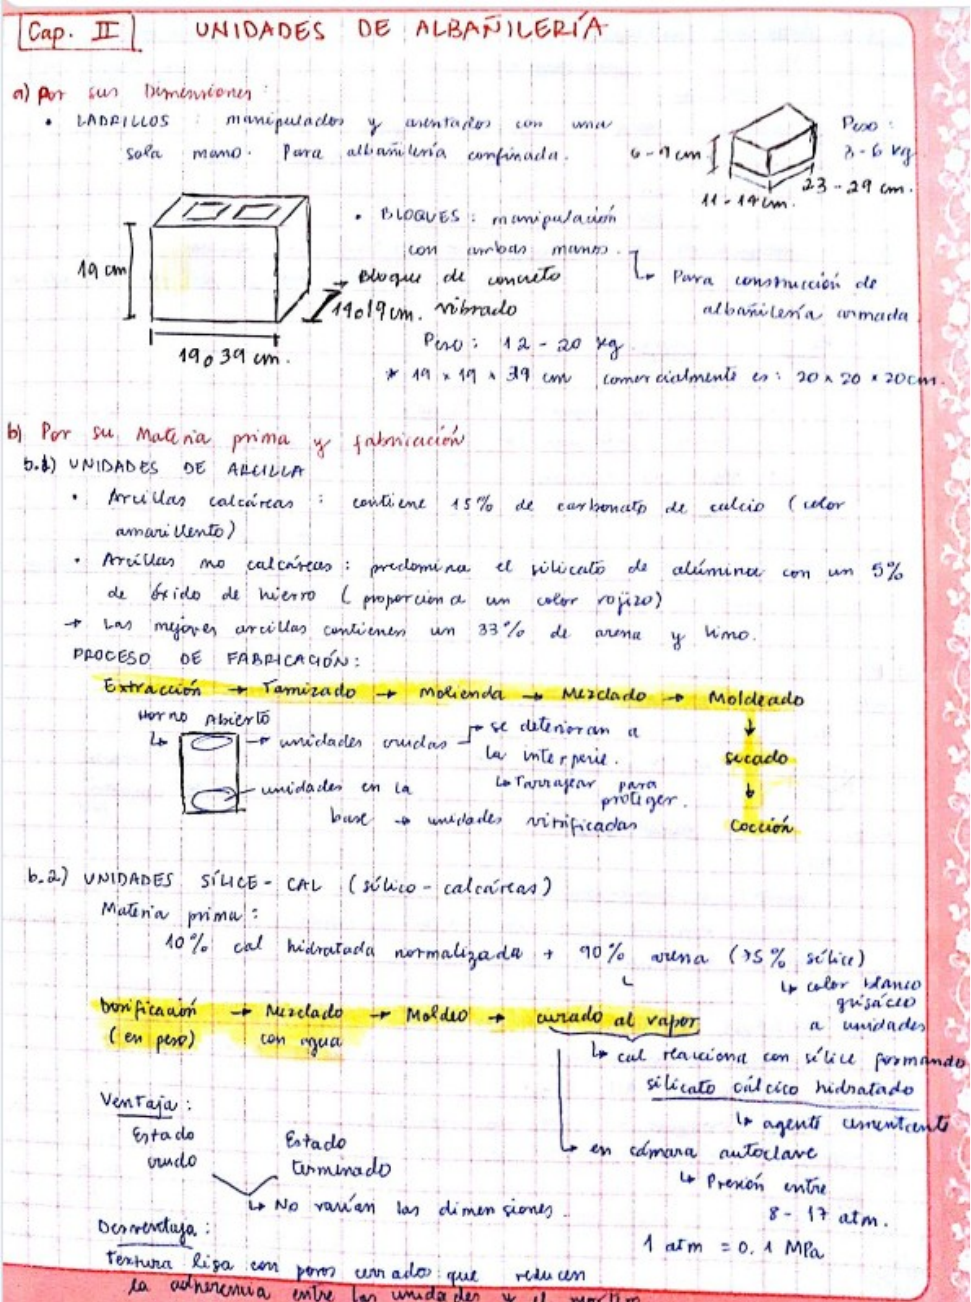 Cap. II UNIDADES DE ALBAÑILERÍA
a) Por sus Dimensiones:
• LADRILLOS : manipulados y asentados con una
sola mano. Para albañilería confinada.
Peso:
3-6 kg
6-9 cm
11-14 cm.
23-29 cm.
• BLOQUES: manipulación
con ambas manos.
↳ Para construcción de
albañilería armada
19 cm
→ Bloque de concreto
vibrado
14 o 19 cm.
19 o 39 cm.
Peso: 12 - 20 kg.
* 19 x 19 x 39 cm comercialmente es: 20 x 20 x 20 cm.
b) Por su Materia prima y fabricación
b.1) UNIDADES DE ARCILLA
• Arcillas calcáreas : contiene 15% de carbonato de calcio (color
amarillento)
• Arcillas no calcáreas: predomina el silicato de alúmina con un 5%
de óxido de hierro (proporciona un color rojizo)
→ Las mejores arcillas contienen un 33% de arena y limo.
PROCESO DE FABRICACIÓN:
Extracción → Tamizado → Molienda → Mezclado → Moldeado
↓
secado
↓
Cocción
Horno Abierto
↳ → unidades crudas → se deterioran a
la interperie.
↳ Tarrajear para
proteger.
unidades en la
base → unidades vitrificadas
b.2) UNIDADES SÍLICE - CAL (sílico - calcáreas)
Materia prima:
10% cal hidratada normalizada + 90% arena (75% sílice)
↳ color blanco
grisáceo
a unidades
Dosificación → Mezclado → Moldeo → curado al vapor
(en peso) con agua
↳ cal reacciona con sílice formando
silicato cálcico hidratado
↳ agente cementante
↳ en cámara autoclave
↳ Presión entre
8 - 17 atm.
1 atm = 0.1 MPa
Ventaja:
Estado
crudo
Estado
terminado
↳ No varían las dimensiones.
Desventaja:
Textura lisa con poros cerrados que reducen
la adherencia entre las unidades y el